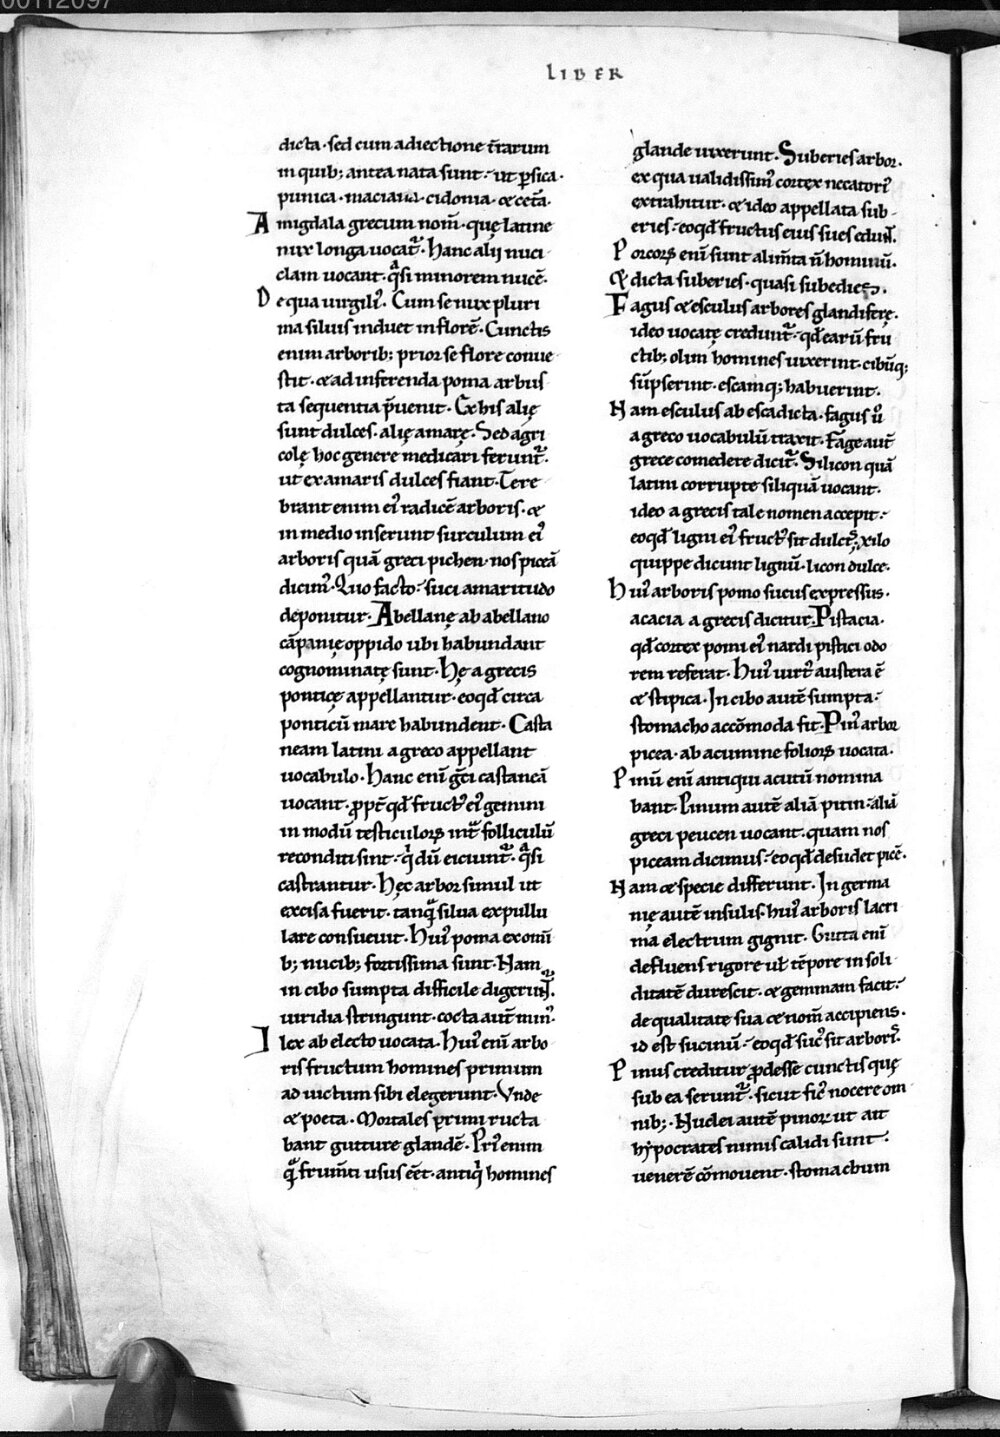 00112097
LIBER
dicta · sed cum adiectione t̄rarum
in quib; antea nata sunt · ut ꝑsica ·
punica · maciana · cidonia · & cet̄a ·
Amigdala grecum nom̄ · quę latine
nux longa uocat᷑ · Hanc alij nuci
clam uocant · qͣsi minorem nucē ·
De qua uirgiliꝰ · Cum se nux pluri
ma siluis induet in florē · Cunctis
enim arborib; prior se flore conue
stit · & ad inferenda poma arbus
ta sequentia p̄uenit · Ex his alię
sunt dulces · alię amarę · Sed agri
colę hoc genere medicari ferunt᷑ ·
ut ex amaris dulces fiant · Tere
brant enim eiꝰ radicē arboris · &
in medio inserunt surculum eiꝰ
arboris quā greci pichen · nos piceā
dicimꝰ · Quo facto · suci amaritudo
deponitur · Abellanę ab abellano
cāpanię oppido ubi habundant
cognominatę sunt · Hę a grecis
ponticę appellantur · eo qd̄ circa
ponticū mare habundent · Casta
neam latini a greco appellant
uocabulo · Hanc eni̅ gͣci castaneā
uocant · ꝓpt̄ qd̄ fructꝰ eiꝰ gemini
in modū testiculoꝝ int᷑ folliculū
reconditi sint · qͥ dū eiciunt᷑ · qͣsi
castrantur · Hęc arbor simul ut
excisa fuerit · tanqͣ silua expullu
lare consueuit · Huiꝰ poma ex omi̅
b; nucib; fortissima sunt · Nam
in cibo sumpta difficile digerunt᷑ ·
uiridia stringunt · cocta aut̄ minꝰ ·
Ilex ab electo uocata · Huiꝰ eni̅ arbo
ris fructum homines primum
ad uictum sibi elegerunt · Vnde
& poeta · Mortales primi ructa
bant gutture glandē · Priꝰ enim
qͣ frum̄ti usus e̅et · antiqͥ homines
glande uixerunt · Suberies arbor ·
ex qua ualidissimꝰ cortex necatoriꝰ
extrahitur · & ideo appellata sub
eries · eo qd̄ fructus eius sues edunt ·
Porcoꝝ eni̅ sunt alim̄ta n̄ hominū ·
Et dicta suberies · quasi subedies ·
Fagus & esculus arbores glandiferę ·
ideo uocatę credunt᷑ · qd̄ earū fru
ctib; olim homines uixerint · cibūq;
sūpserint · escamq; habuerint ·
Nam esculus ab esca dicta · fagus ů
a greco uocabulū traxit · Fage aut̄
grece comedere dicit᷑ · Silicon quā
latini corrupte siliquā uocant ·
ideo a grecis tale nomen accepit ·
eo qd̄ ligni eiꝰ fructꝰ sit dulcis · xilo
quippe dicunt lignū · licon dulce ·
Huiꝰ arboris pomo sucus expressus ·
acacia a grecis dicitur · Pistacia ·
qd̄ cortex pomi eiꝰ nardi pistici odo
rem referat · Huiꝰ uirtꝰ austera ē
& stipica · In cibo autē sumpta ·
stomacho accōmoda fit · Pinꝰ arbor
picea · ab acumine folioꝝ uocata ·
Pinū eni̅ antiqui acutū nomina
bant · Pinum autē aliā pitin · aliā
greci peucen uocant · quam nos
piceam dicimus · eo qd̄ desudet picē ·
Nam & specie differunt · In germa
nię autē insulis · huiꝰ arboris lacri
ma electrum gignit · Gutta eni̅
defluens rigore uł tēpore in soli
ditatē durescit · & gemmam facit ·
de qualitate sua & nom̄ accipiens ·
id est sucinū · eo qd̄ sucꝰ sit arboris ·
Pinus creditur ꝓdesse cunctis quę
sub ea serunt᷑ · sicut ficꝰ nocere om
nib; · Nuclei autē pinoꝝ ut ait
hypocrates nimis calidi sunt ·
uenerē cōmouent · stomachum